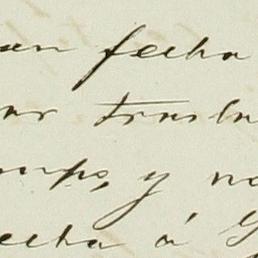 an fecha
ar trasla
mps, y no
echa á